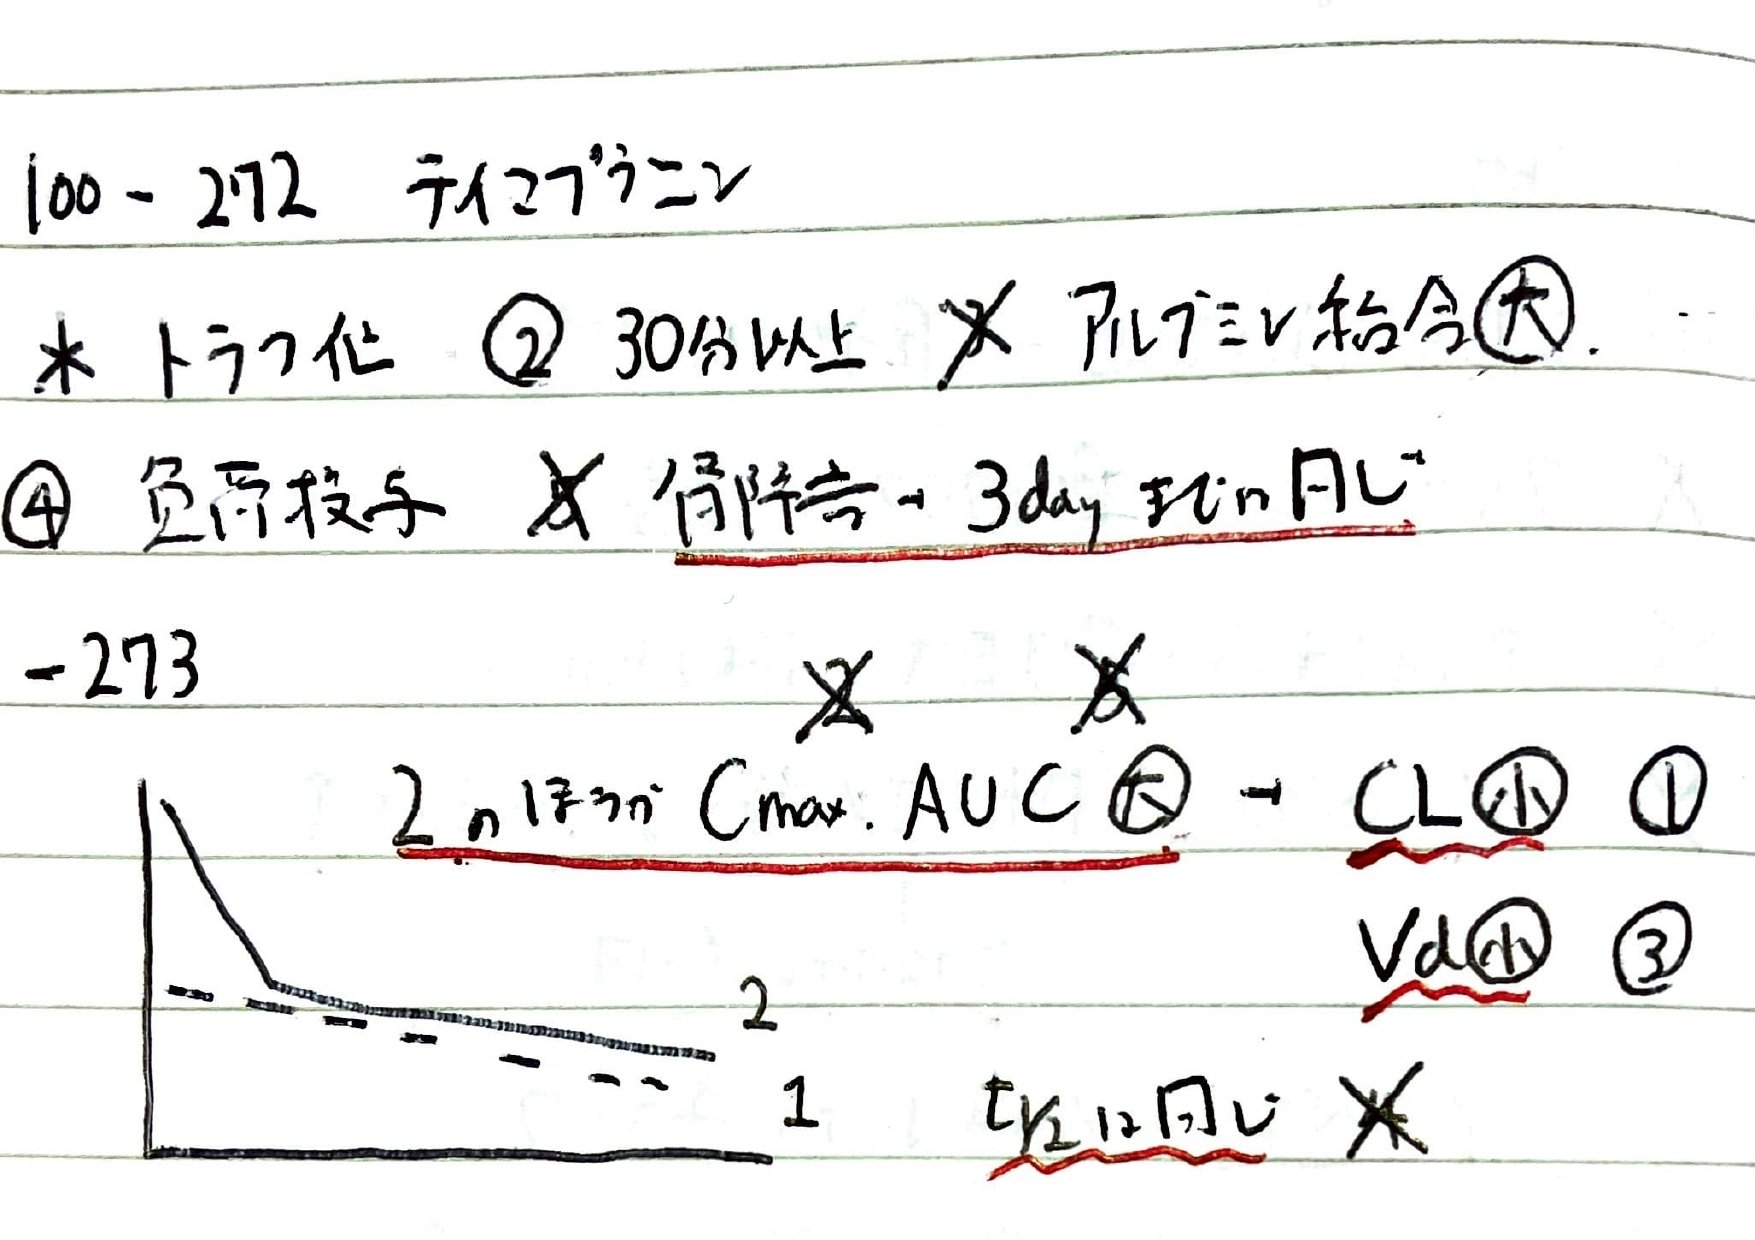 100-272 テイコプラニン
トラフ値 ② 30分以上 3 アルブミン結合大.
④ 負荷投与 5 腎障害→3dayまでは同じ
-273
2 5
2のほうが Cmax. AUC大 → CL小 ①
Vd小 ③
2
1 t1/2は同じ 4